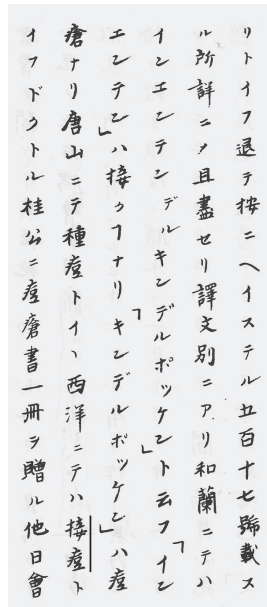 リトイフ退テ按ニヘイステル五百十七號載ス
ル所詳ニメ且盡セリ譯文別ニアリ和蘭ニテハ
インエンテンデルキンデルポッケント云フ「イン
エンテン」ハ接クフナリ「キンデルポッケン」ハ痘
瘡ナリ唐山ニテ種痘トイヽ西洋ニテハ接痘ト
イフドクトル桂公ニ痘瘡書一冊ヲ贈ル他日會